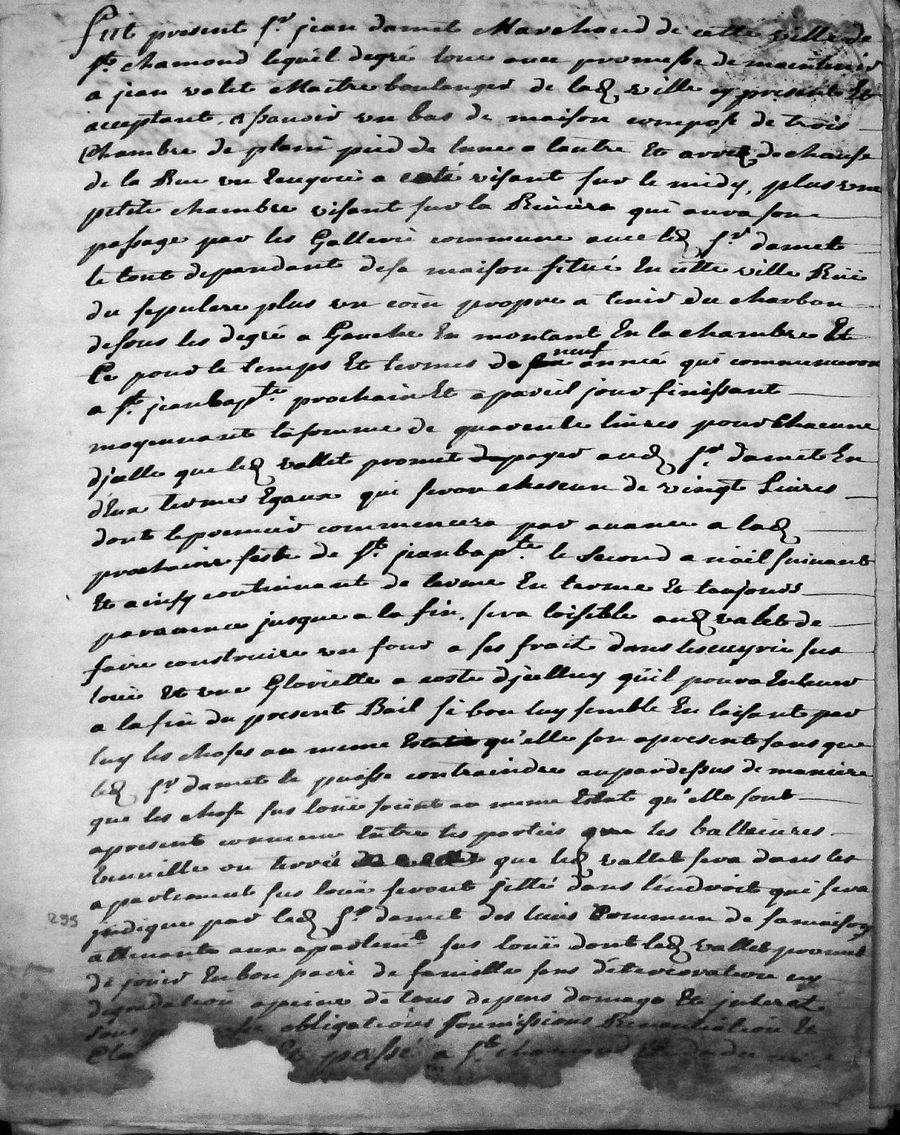 Fut present Sr. jean damet Marchand de cette ville de
st. chamond lequel degré loue avec promesse de maintenir
a jean valet Maitre boulanger de lad ville cy present Et
acceptant, a sçavoir un bas de maison compose de trois
Chambre de plain pied de lune a lautre Et
de la Rue a coté visant sur le midy, plus une
petite chambre visant sur la Riviera qui aura son
passage par les Gallerie commune avec led Sr. damet
le tout dependant de sa maison situé En cette ville Rüe
du sepulcre plus un coin propre a tenir du charbon
desous les degré a Gauche En montant En la chambre Et
Ce pour le temps Et termes de neuf année qui commenceron
a St. jeanbapte. prochain Et a pareil jour finissant
moyennant la somme de quarente livres pour Chacune
djcelle que led vallet promet payer aud Sr. damet En
deux termes Egaux qui seron chascun de vingt Livres
dont le premier commencera par avance a lad
prochaine feste de St. jeanbapte. le second a noël suivant
Et ainsy continuant de terme En terme Et toujours
par avance jusque a la fin, sera loisible aud valet de
faire construire un four a ses frait dans sus
loüé Et une Glorielle a coste djcelluy qu'il poura Enlever
a la fin du present Bail si bon luy semble En laisant par
luy les choses au meme Estat qu'elle son apresent sans que
led Sr. damet le puisse contraindre au pardessus de maniere
que les chose sus loüé soient au meme Estat qu'elle sont
apresent convenu Entre les parties que les ballieures
ou que led vallet fera dans les
apartement sus loüé seront jetté dans l'endroit qui sera
jndiqué par led Sr. damet des commun de sa maison
attenants aux apartemt sus loüé dont led vallet promet
de jouir En bon paire de famille sans déterioration ny
degradation a peine de tous depens domage Et jnterat
sous obligations soumissions Renontiation Et
Cla Et passé a St. chamond
295